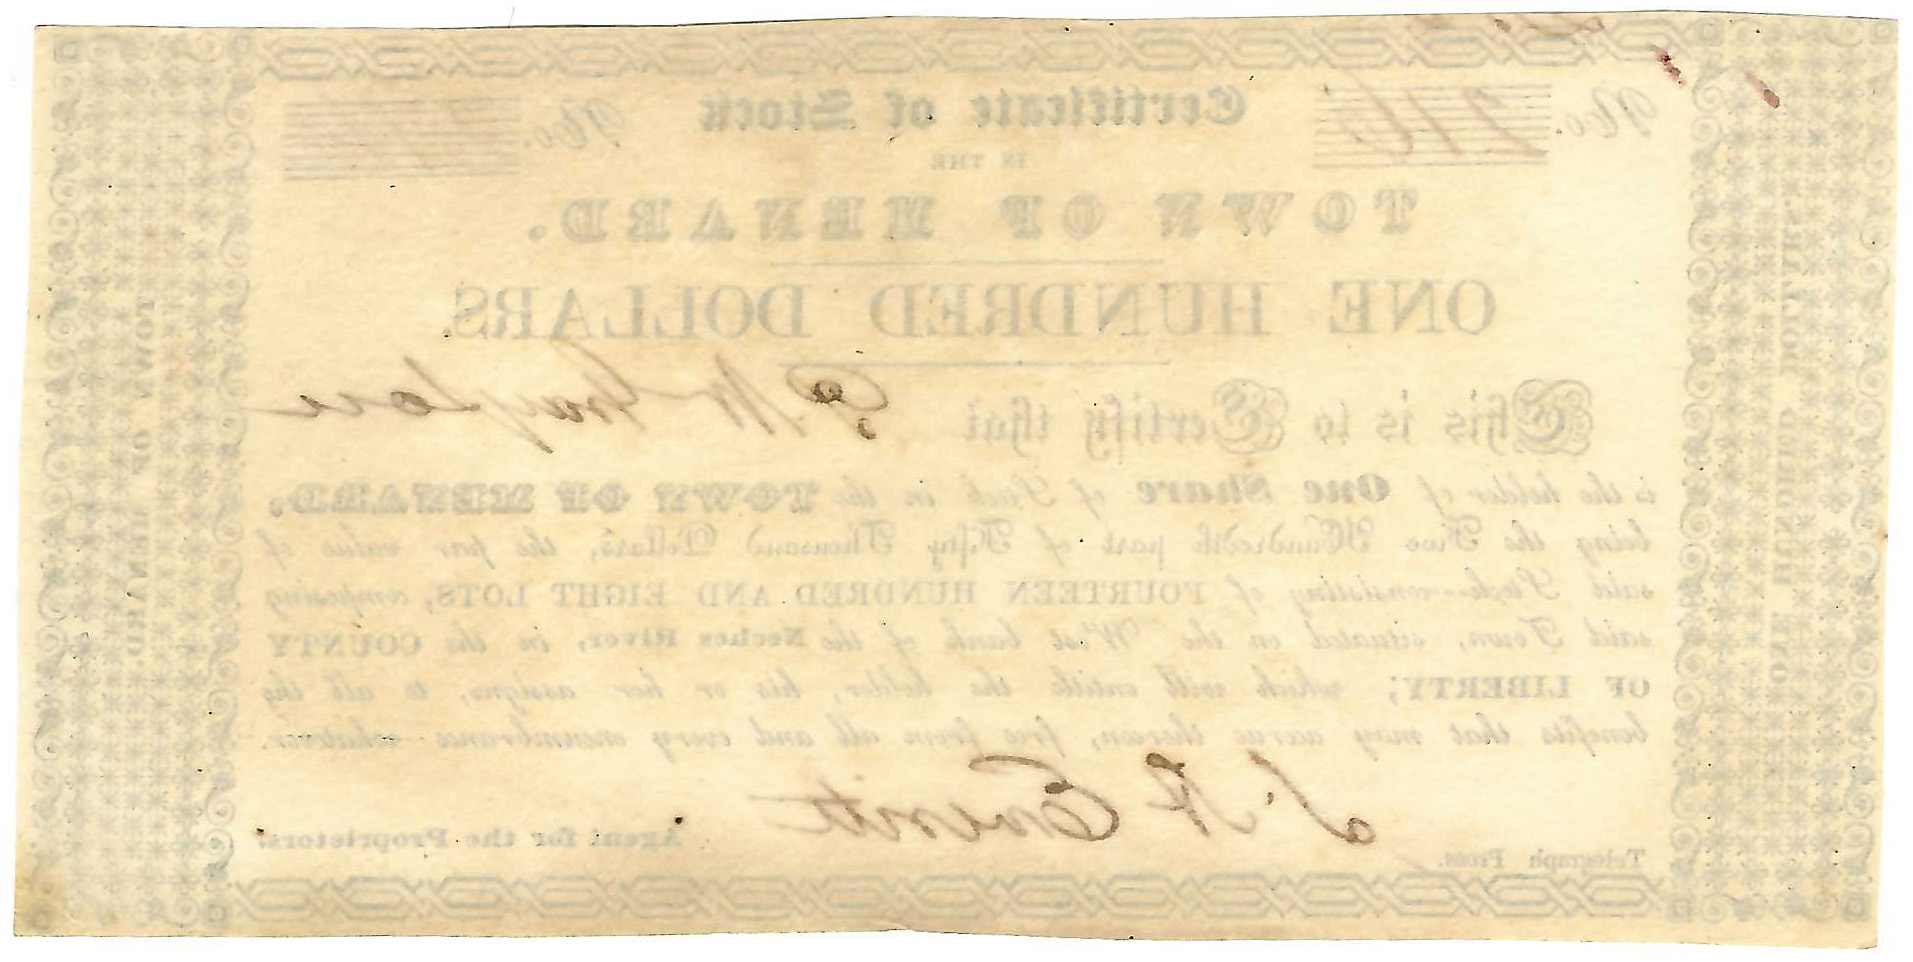 No. 216 No.
Certificate of Stock
IN THE
TOWN OF MENARD.
ONE HUNDRED DOLLARS.
This is to Certify that
is the holder of One Share of Stock in the TOWN OF MENARD,
being the Five Hundredth part of Fifty Thousand Dollars, the par value of
said Stock—consisting of FOURTEEN HUNDRED AND EIGHT LOTS, composing
said Town, situated on the West bank of the Neches River, in the COUNTY
OF LIBERTY; which will entitle the holder, his or her assigns, to all the
benefits that may accrue thereon, free from all and every incumbrance whatever.
Telegraph Press. Agent for the Proprietors.
ONE HUNDRED DOLLARS.
TOWN OF MENARD.